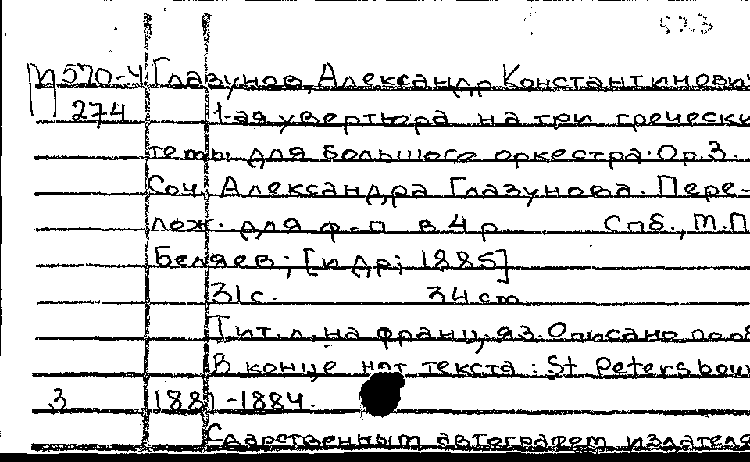 573
П 570-4 Глазунов, Александр Константинович
274 1-ая увертюра на три гречески
темы для большого оркестра. Ор.3.
Соч. Александра Глазунова. Пере-
лож. для ф-п в 4 р Спб., М.П
Беляев; [и др; 1885]
31 с. 34 cm
Тит. л. на франц. яз. Описано по об
В конце нот текста: St Petersbour
3 1881-1884.
С дарственным автографом издателя